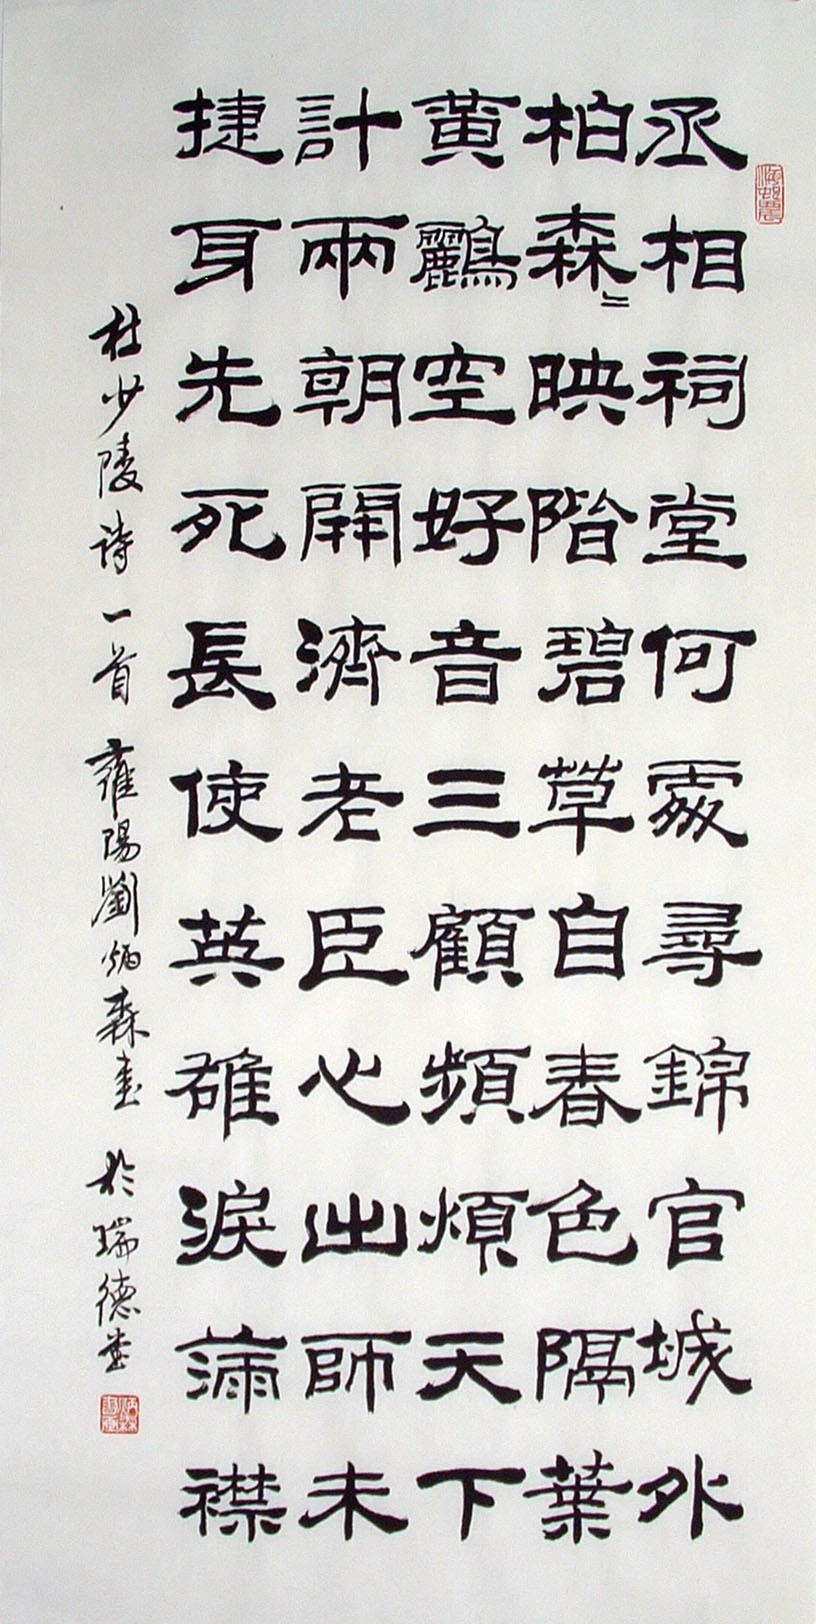 丞相祠堂何處尋錦官城外
柏森〻映階碧草自春色隔葉
黃鸝空好音三顧頻煩天下
計兩朝開濟老臣心出師未
捷身先死長使英雄淚滿襟
杜少陵诗一首 雍陽劉炳森書 於瑞德堂
炳森書画